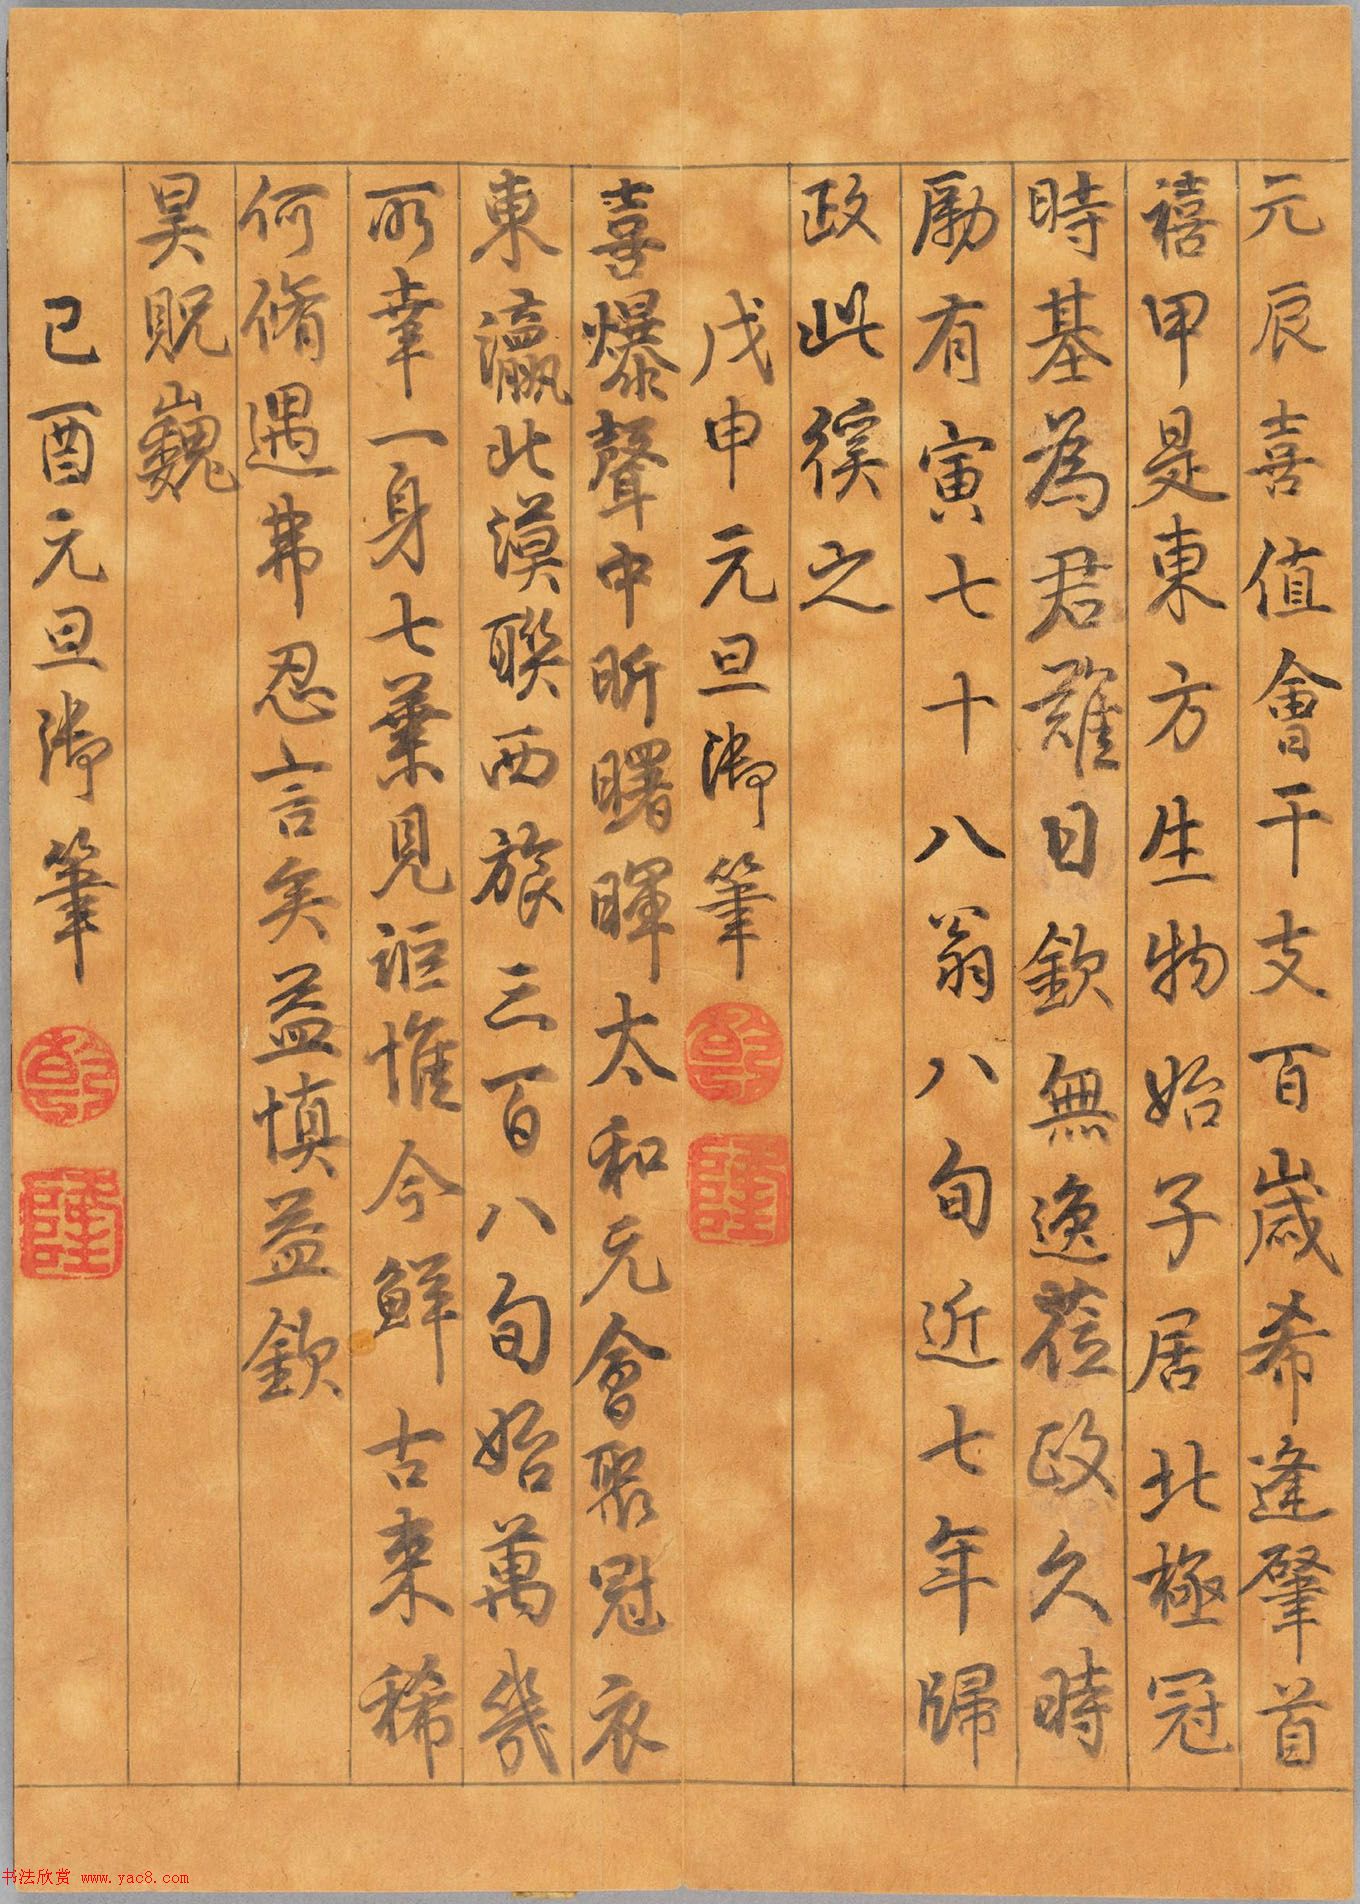 元辰喜值會干支百歲希逢肇首
禧甲是東方生物始子居北極冠
時基為君難日欽無逸蒞政久時
勵有寅七十八翁八旬近七年歸
政此徯之
戊申元旦御筆
乾
隆
喜爆聲中昕曙暉太和元會聚冠衣
東瀛北漠聯西旅三百八旬始萬幾
所幸一身七葉見詎惟今鮮古來稀
何脩遇弗忍言矣益慎益欽
昊貺巍
己酉元旦御筆
乾
隆
书法欣赏 www.yac8.com